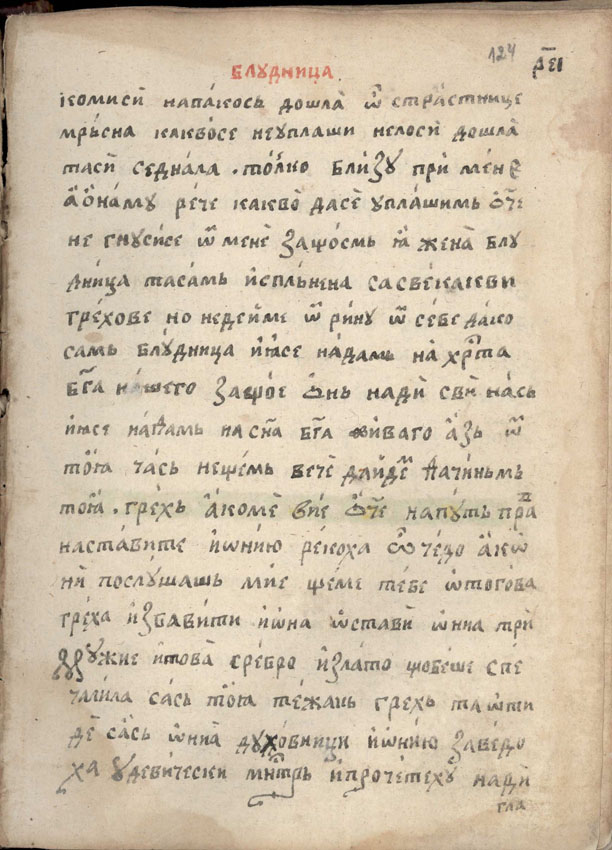 124 р҃єι
блꙋдница
комисѝ напа́кось дошла̀ ѿ стра́стнице
мръсна какво̀се неꙋплаши нелоси́ дошла̀
таси̏ седна́ла . то́лко бли́зꙋ при̏ ме́не
а҆ѻ҆на́мꙋ ре́че какво̀ дасе̏ ꙋпла́шимъ ѻ҆́ч҃е
не гнꙋси́се ѿ мене̏ защо́смь ꙗ҆ жена̀ блꙋ
дни́ца таса́мь испль́нена сасве́какви
гре́хове но недейме ѿ ри́нꙋ ѿ се́бе да́ко
самь блꙋ́дница и҆ꙗ҆се на́дамь на̀ хрⷭ҇та
бг҃а на́шего защо́е ѻ҆́нь нади̏ сви̏ на́сь
и҆ꙗ҆се на́дамь на сн҃а бг҃а живаго а҆́зь ѿ
то́ꙗ ча́сь неще́мь вече да́иде́ⷨ да́чинꙗмь
то́ꙗ . гре́хь а҆́коме ви́е ѻ҆́ч҃е напꙋ́ть пра́ⷡ
наста́вите и҆ѡ́нию реко́ха ѽ че́до а҆́кѡ
ни̏ послꙋ́шашь ми́е щеме тебе ѡ҆тогова
гре́ха и҆зба́вити и҆ѡ́на ѡ҆ста́ви ѡ́ниа три̏
дрꙋ́жие и҆това̀ сребро̀ и҆зла́то щобе́ше спе
чали́ла сась то́ꙗ те́жакь грехь та ѡ҆ти
дѐ са́сь ѡ҆ниа̏ дꙋхо́вници и҆ѡ́нию заве́до
ха ꙋ҆деви́чески мнⷭ҇трь и҆прочетехꙋ̏ нади̏
гла